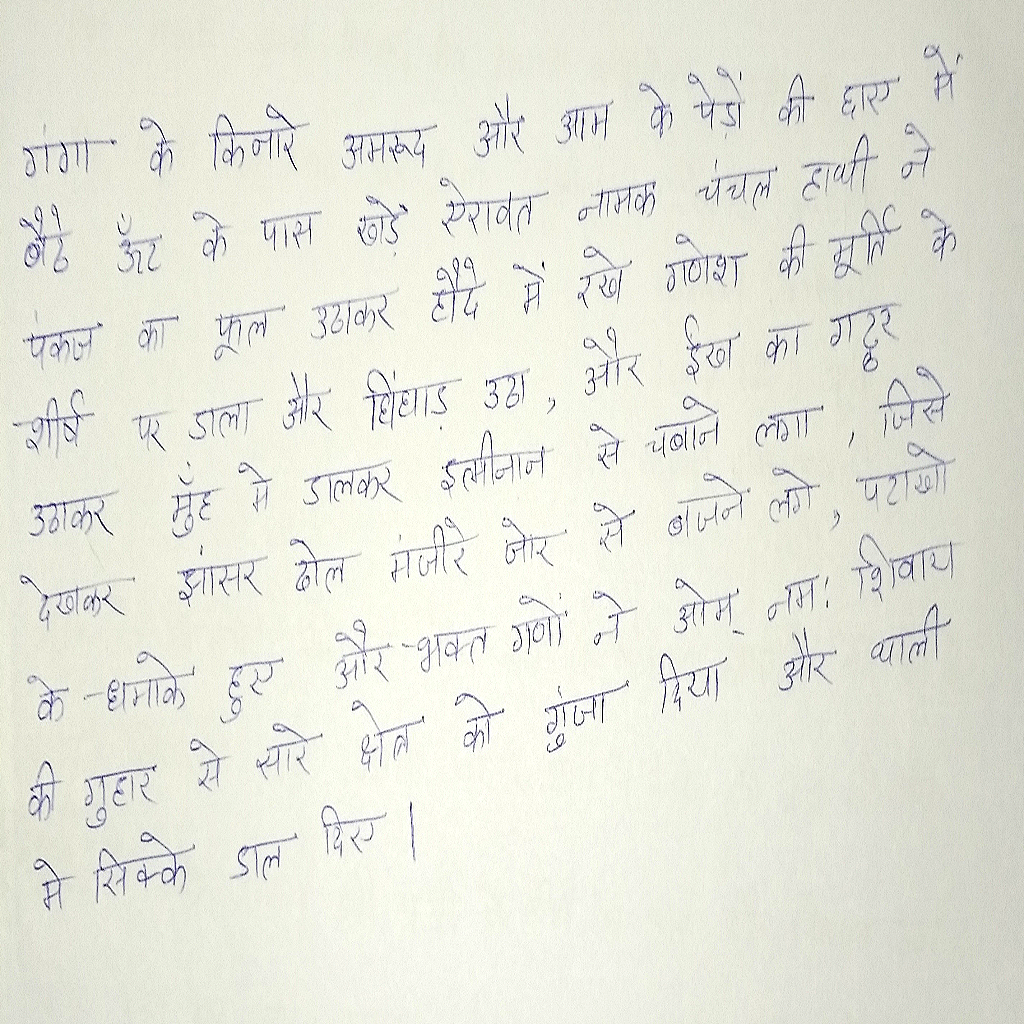 गंगा के किनारे अमरूद और आम के पेड़ों की छाए में
बैठे ऊँट के पास खड़े ऐरावत नामक चंचल हाथी ने
पंकज का फूल उठाकर हौदे में रखे गणेश की मूर्ति के
शीर्ष पर डाला और चिंघाड़ उठा, और ईख का गट्ठर
उठाकर मुँह मे डालकर इत्मीनान से चबाने लगा, जिसे
देखकर झांसर ढोल मंजीरे जोर से बाजने लगे, पटाखो
के धमाके हुए और भक्त गणों ने ओम् नमः शिवाय
की गुहार से सारे क्षेत्र को गुंजा दिया और थाली
मे सिक्के डाल दिए।